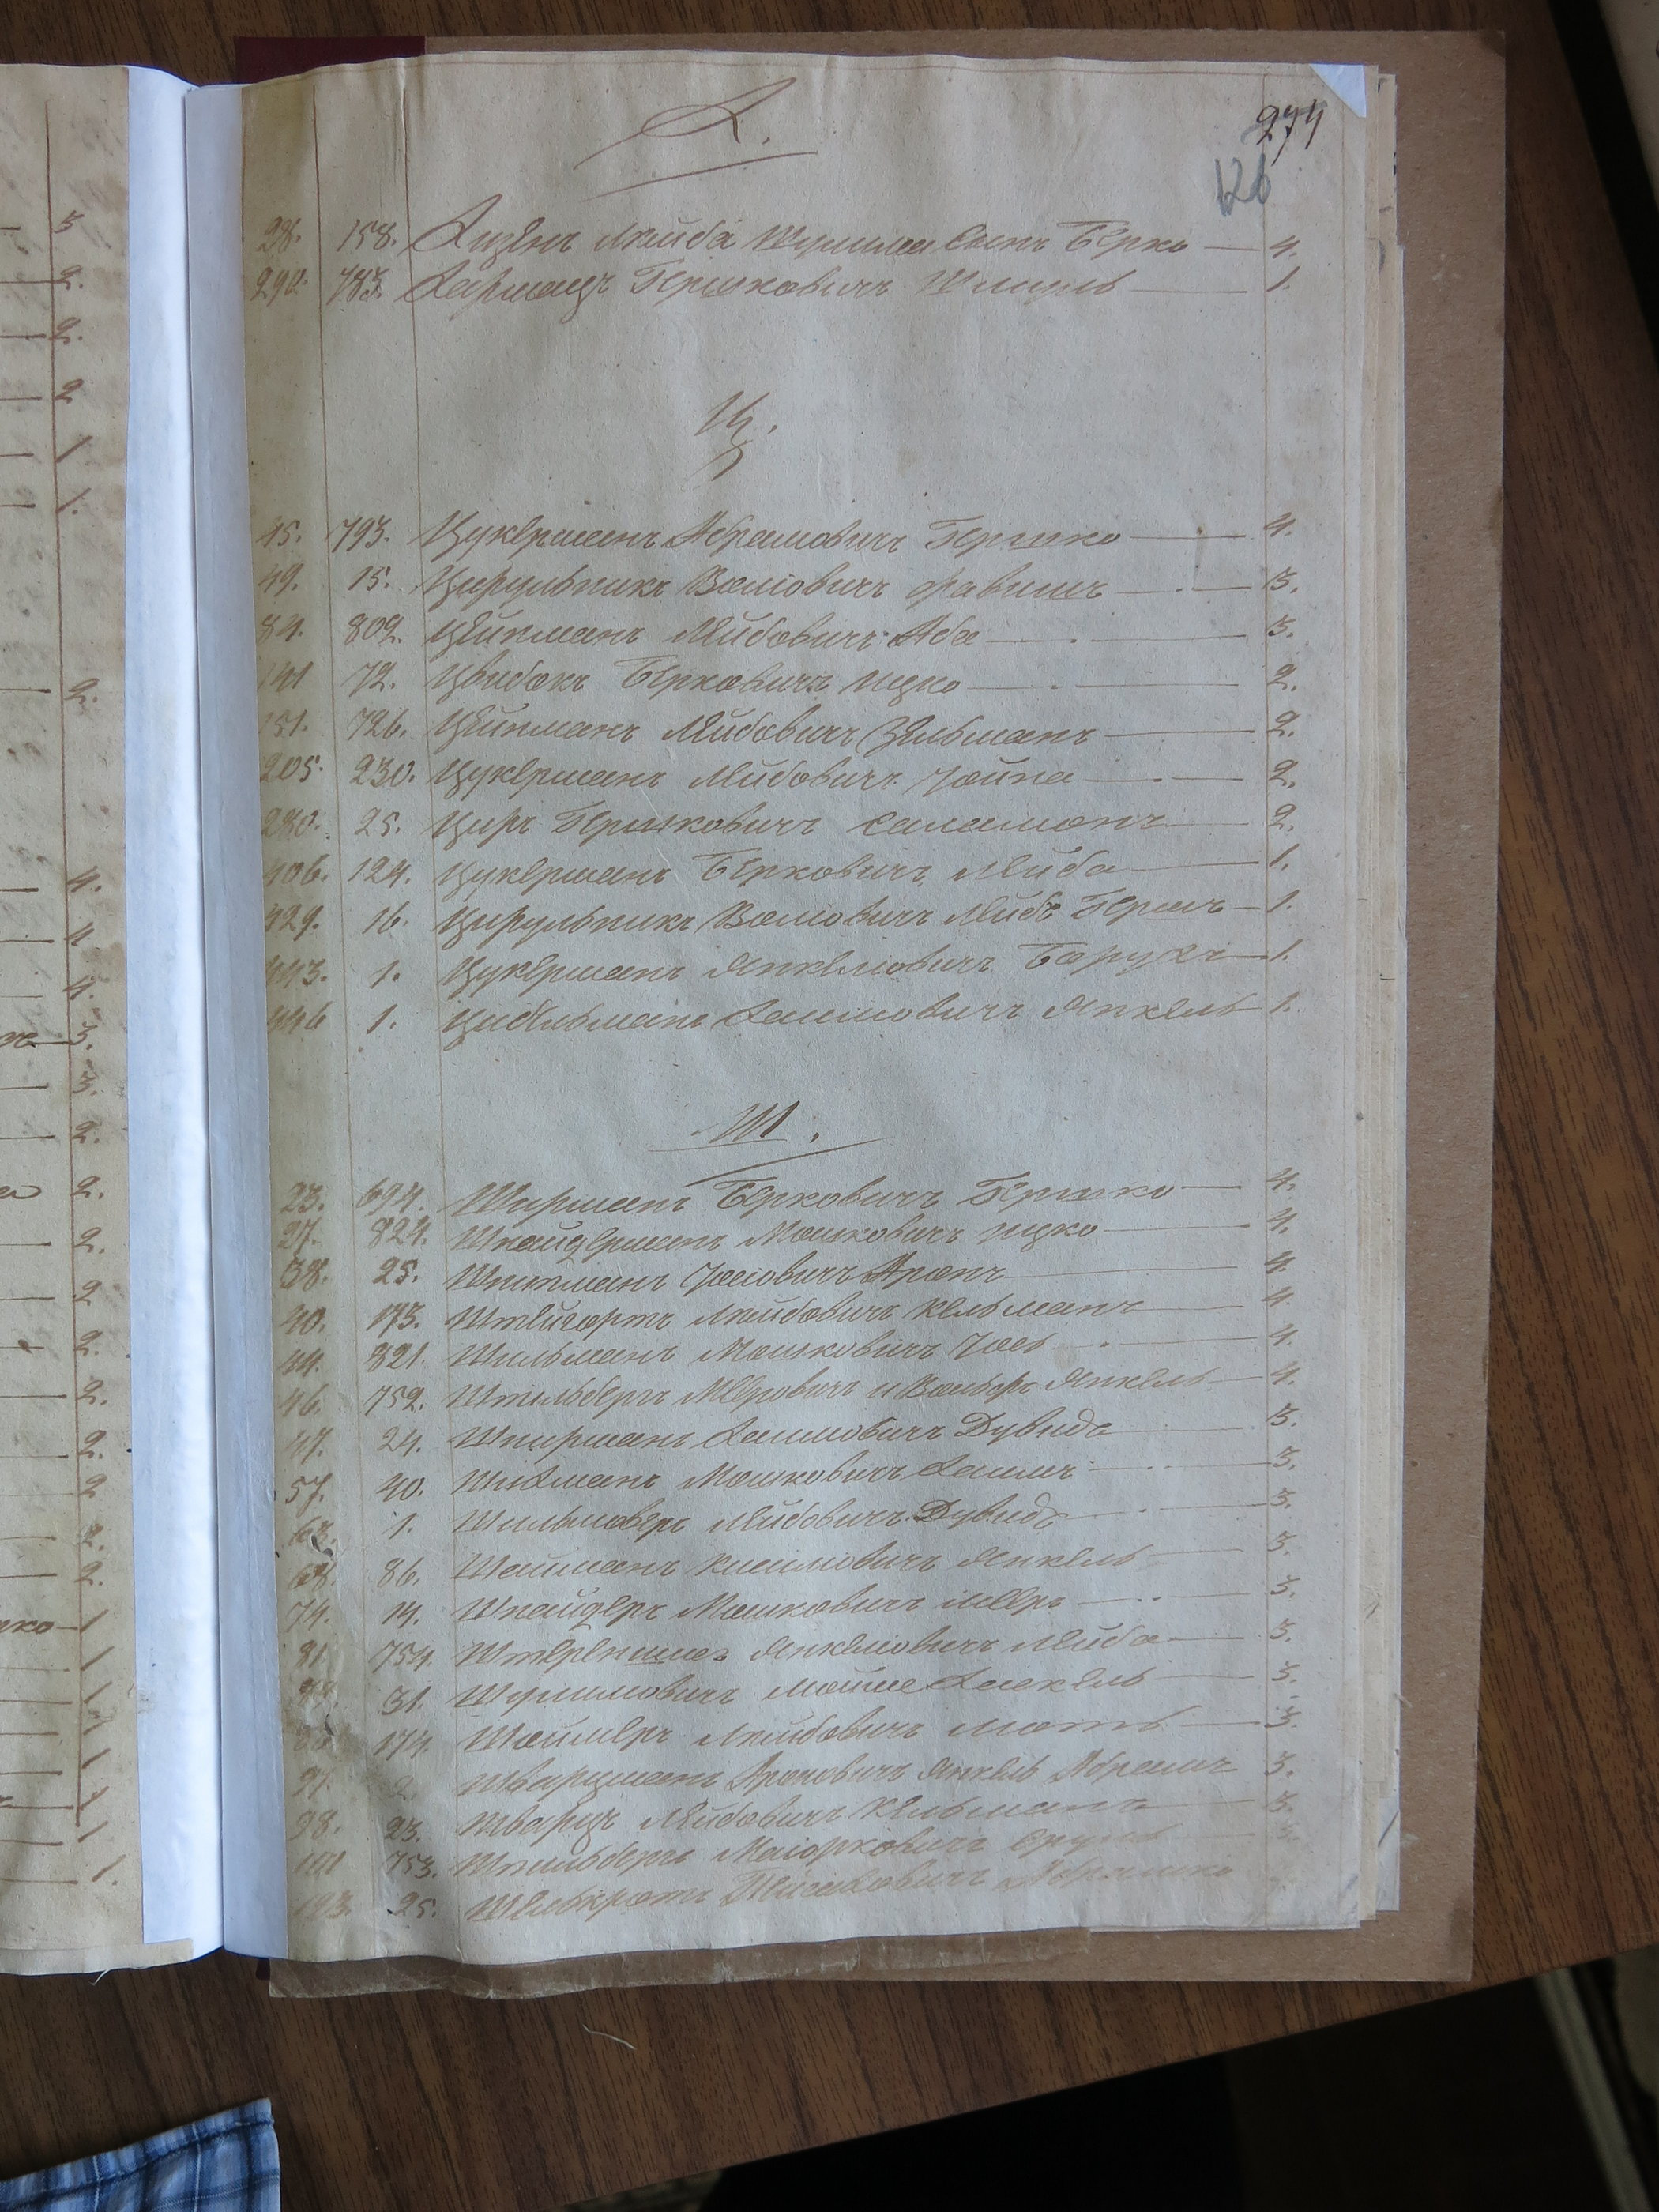 Х.
274
126
28. 158. Хизенъ Лейба Шулима Сынъ Берко — 4.
290. 783. Хармацъ Гершковичъ Шмуль — 1.
Ц.
45. 793. Цукерманъ Абрамовичъ Гершко — 4.
49. 15. Цирульникъ Волiовичъ Файвишъ — 3.
84. 809. Цейтманъ Лейбовичъ Аба — 3.
141 72. Цвибокъ Берковичъ Ицко — 2.
151. 726. Цейтманъ Лейбовичъ Зельманъ — 2.
205. 230. Цукерманъ Лейбовичъ Iойна — 2.
280. 25. Циръ Гершковичъ Саламонъ — 2.
406. 124. Цукерманъ Берковичъ Лейба — 1.
429. 16. Цирульникъ Волiовичъ Лейбъ Гершъ — 1.
443. 1. Цукерманъ Янкелiовичъ Борухъ — 1.
446 1. Цибельманъ Хаимовичъ Янкель 1.
Ш.
23. 694. Ширманъ Берковичъ Гершко — 4.
27. 824. Шнайдерманъ Мошковичъ Ицко — 4.
38. 25. Шитманъ Iосiовичъ Аронъ — 4.
40. 173. Штейгортъ Лейбовичъ Кельманъ — 4.
44. 821. Шильманъ Мошковичъ Iось — 4.
46. 752. Штильбергъ Меровичъ и Вольфъ Янкель — 4.
47. 24. Шпирманъ Хаимовичъ Дувидъ 3.
57. 40. Шихманъ Мошковичъ Хаимъ — 3.
63. 1. Шильмоверъ Лейбовичъ Дувидъ — 3.
68. 86. Шойманъ Янкель — 3.
74. 14. Шнайдеръ Мошковичъ Меръ — 3.
81 754. Янкелiовичъ Лейба — 3.
31. Шулимовичъ Мойше Хаскель — 3.
174. Шоймеръ Лейбовичъ Мотъ — 3.
91 2. Шварцманъ Ароновичъ Янкель Абрамъ 3.
98. 23. Шварцъ Лейбовичъ Кельманъ — 3.
101 753. Штильбергъ Маiорковичъ Сруль 3.
103. 25. Абрамко